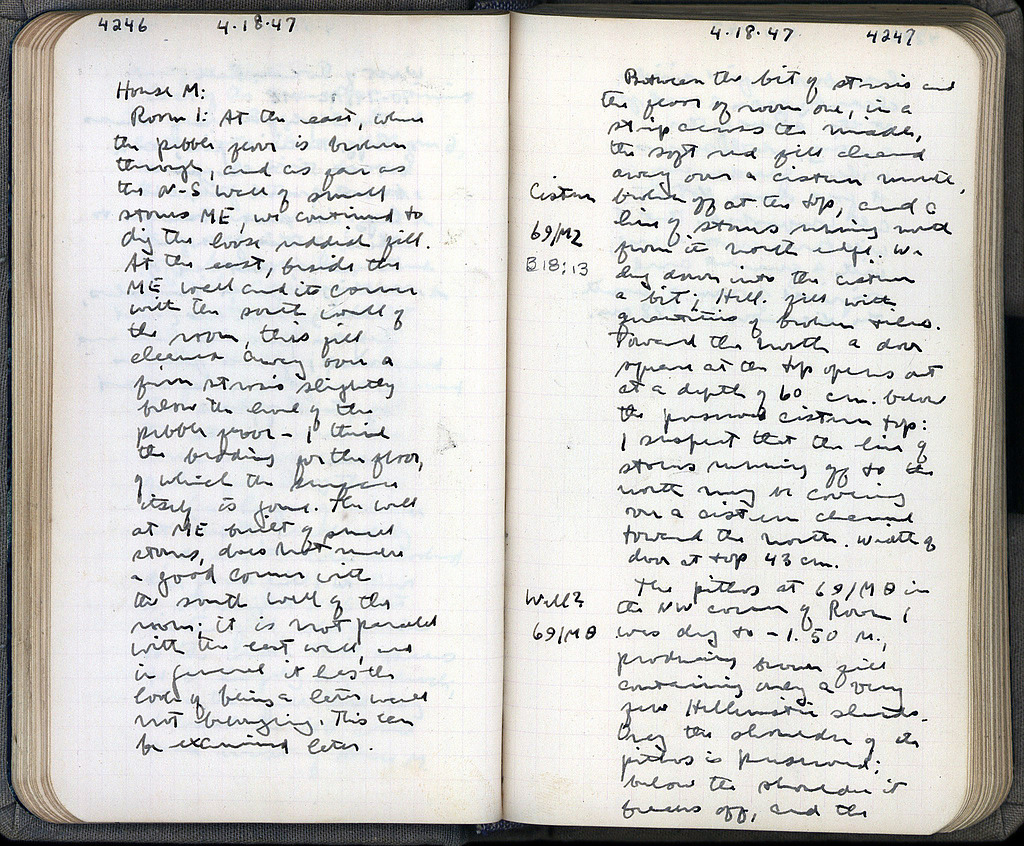 4246 4·18·47
House M:
Room 1: At the east, where
the pebble floor is broken
through, and as far as
the N-S wall of small
stones ME, we continued to
dig the loose reddish fill.
At the east, beside the
ME wall and its corner
with the south wall of
the room, this fill
cleaned away over a
firm strosis slightly
below the level of the
pebble floor - I think
the bedding for the floor,
of which the surface
itself is gone. The wall
at ME built of small
stones, does not make
a good corner with
the south wall of the
room; it is not parallel
with the east wall, and
in general it has the
look of being a later wall
not belonging. This can
be examined later.
4·18·47 4247
Between the bit of strosis and
the floor of room one, in a
strip across the middle,
the soft red fill cleaned
away over a cistern mouth,
Cistern
broken off at the top, and a
line of stones running north
69/MΖ
from its north edge. We
B 18:13
dug down into the cistern
a bit; Hell. fill with
quantities of broken tiles.
Toward the north a door
square at the top opens out
at a depth of 60 cm. below
the preserved cistern top:
I suspect that the line of
stones running off to the
north may be covering
over a cistern channel
toward the north. Width of
door at top 43 cm.
The pithos at 69/MΘ in
Well?
the NW corner of Room 1
69/MΘ
was dug to -1.50 M.,
producing brown fill
containing only a very
few Hellenistic sherds.
Only the shoulder of the
pithos is preserved;
below the shoulder it
breaks off, and the